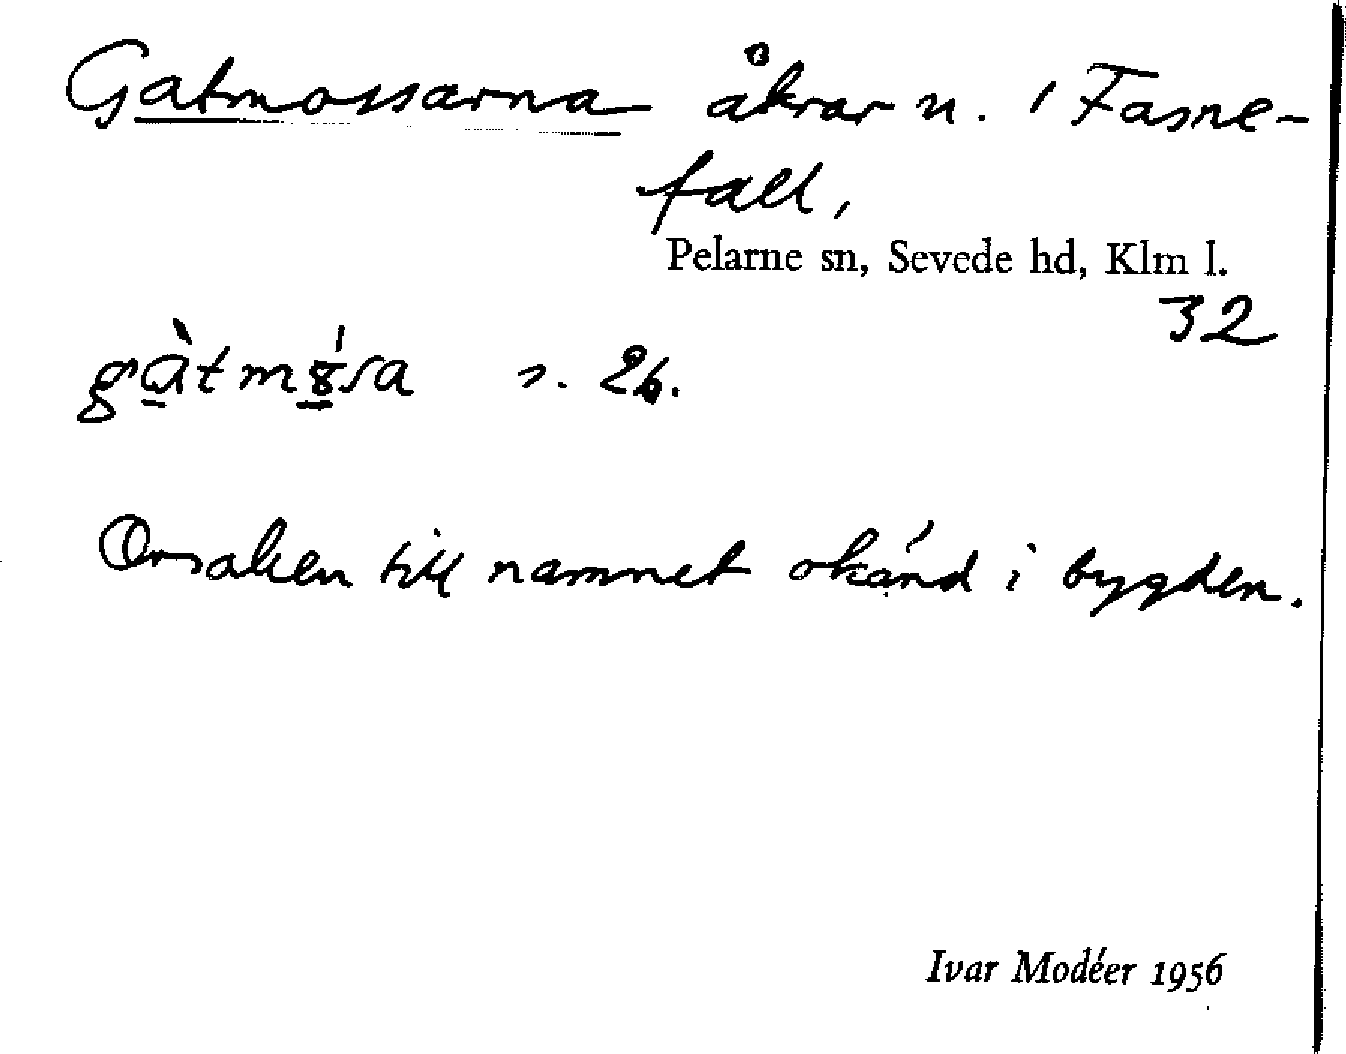 Gatmossarna åkrar n. i Fasne-
fall,
Pelarne sn, Sevede hd, Klm l.
32
s. 26.
Orsaken till namnet okänd i bygden.
Ivar Modéer 1956